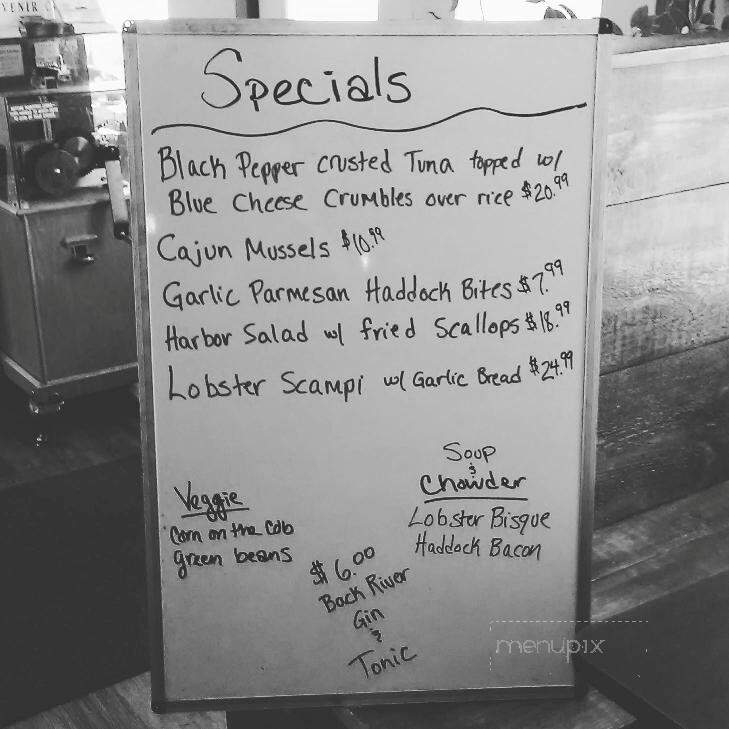 VENIR
Specials
Black Pepper crusted Tuna topped w/
Blue Cheese Crumbles over rice $20.99
Cajun Mussels $10.99
Garlic Parmesan Haddock Bites $7.99
Harbor Salad w/ fried Scallops $18.99
Lobster Scampi w/ Garlic Bread $24.99
Veggie
Corn on the Cob
green beans
Soup
&
Chowder
Lobster Bisque
Haddock Bacon
$6.00
Back River
Gin
&
Tonic
menupix